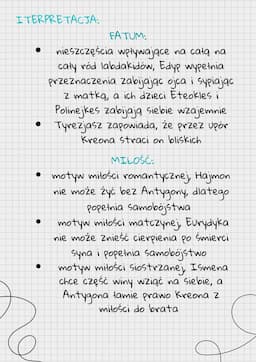 ITERPRETACJA:
FATUM:
nieszczęścia wpływające na całą na
cały ród labdakidów, Edyp wypełnia
przeznaczenia zabijając ojca i sypiając
z matką, a ich dzieci Eteokles i
Polinejkes zabijają siebie wzajemnie
Tyrezjasz zapowiada, że przez upór
Kreona straci on bliskich
MIŁOŚĆ:
motyw miłości romantycznej, Hajmon
nie może żyć bez Antygony, dlatego
popełnia samobójstwa
motyw miłości matczynej, Eurydyka
nie może znieść cierpienia po śmierci
syna i popełnia samobójstwo
motyw miłości siostrzanej, Ismena
chce część winy wziąć na siebie, a
Antygona łamie prawo Kreona z
miłości do brata